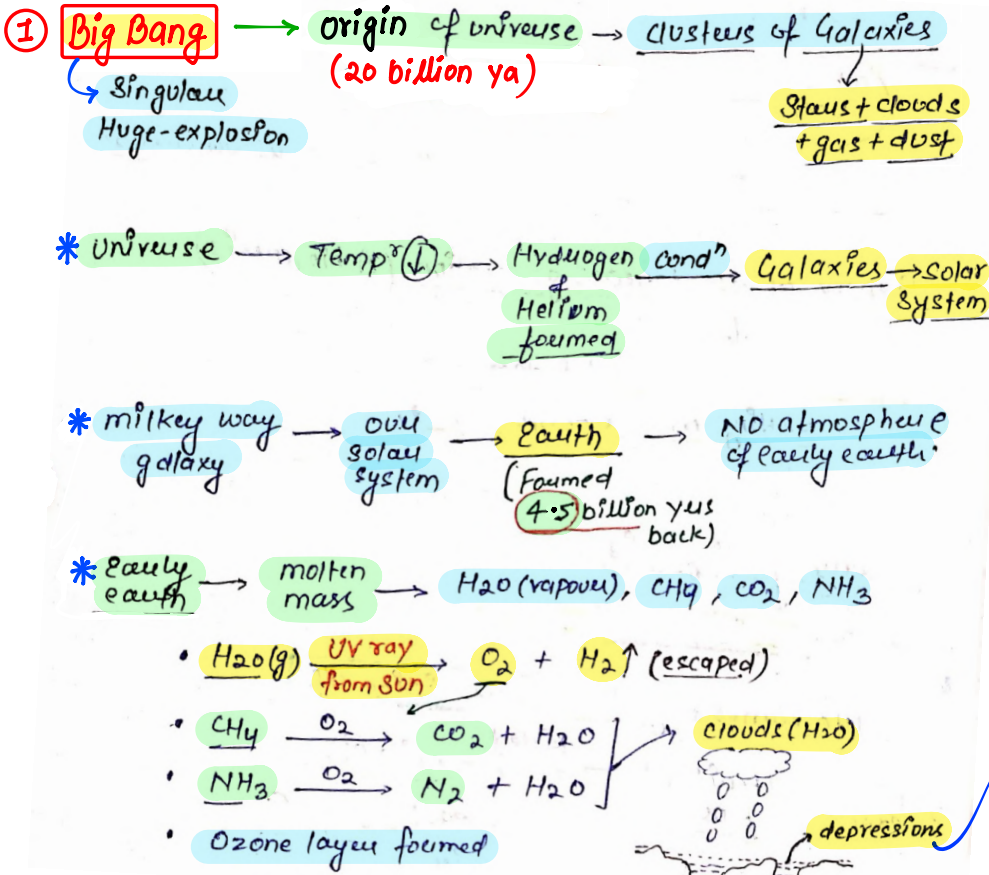 ① Big Bang → Origin of universe → clusters of Galaxies
(20 billion ya)
Singular
Huge-explosion
Stars + clouds
+ gas + dust
* Universe → Tempʳ ↓ → Hydrogen & Helium formed condⁿ → Galaxies → Solar System
* milkey way galaxy → Our solar system → Earth → NO atmosphere of early earth.
(Formed
4.5 billion yrs
back)
* Early earth → molten mass → H2O (vapour), CH4, CO2, NH3
• H2O(g) UV ray from sun → O2 + H2↑ (escaped)
• CH4 O2 → CO2 + H2O
clouds (H2O)
• NH3 O2 → N2 + H2O
• Ozone layer formed
depressions